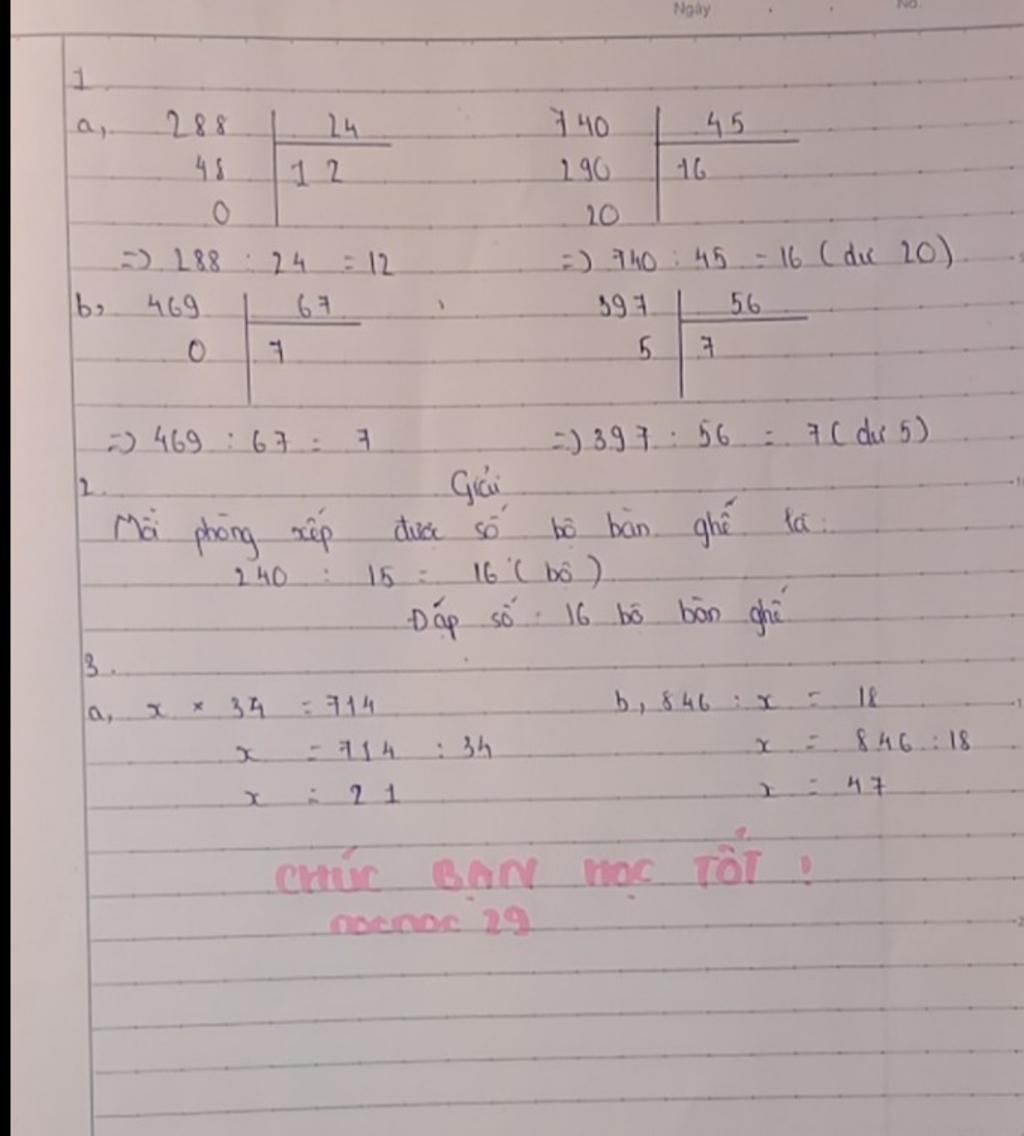 Ngày No.
1
a, 288 24 740 45
48 12 290 16
0 20
=> 288 : 24 = 12 => 740 : 45 = 16 (dư 20)
b, 469 67 397 56
0 7 5 7
=> 469 : 67 = 7 => 397 : 56 = 7 (dư 5)
2. Giải
Mỗi phòng xếp được số bộ bàn ghế là:
240 : 15 = 16 (bộ)
Đáp số : 16 bộ bàn ghế
3.
a, x × 34 = 714 b, 846 : x = 18
x = 714 : 34 x = 846 : 18
x = 21 x = 47
CHÚC BẠN HỌC TỐT !
nocnoc 29